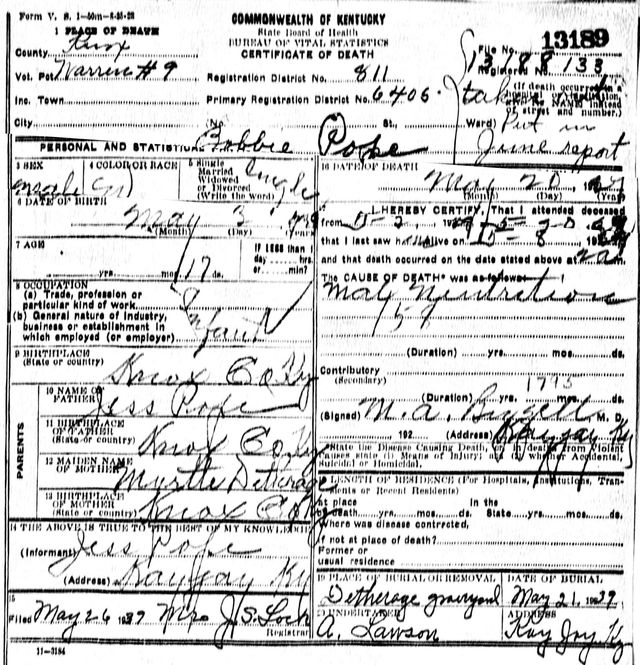 Form V. S. 1-50m-8-26-28
COMMONWEALTH OF KENTUCKY
State Board of Health
BUREAU OF VITAL STATISTICS
CERTIFICATE OF DEATH
1 PLACE OF DEATH
County Knox
Vot. Pct Warren #9
Inc. Town
City
File No. 13189
13188
Registered No. 133
Registration District No. 811
Primary Registration District No. 6406
(No. St., Ward)
(If death occurred in a hospital or institution, NAME instead of street and number.)
Put in
June report
Bobbie Pope
PERSONAL AND STATISTICAL
3 SEX Male
4 COLOR OR RACE
5 Single
Married
Widowed
or Divorced
(Write the word)
Single
6 DATE OF BIRTH
May 3
(Month) (Day) (Year)
7 AGE
yrs. mos. 17 ds.
IF LESS than 1
day hrs.
or min.?
8 OCCUPATION
(a) Trade, profession or
particular kind of work.
(b) General nature of industry,
business or establishment in
which employed (or employer)
Infant
9 BIRTHPLACE
(State or country)
Knox Co Ky
PARENTS
10 NAME OF
FATHER Jess Pope
11 BIRTHPLACE
OF FATHER
(State or country)
Knox Co Ky
12 MAIDEN NAME
OF MOTHER Myrtle Detherage
13 BIRTHPLACE
OF MOTHER
(State or country)
Knox Co Ky
14 THE ABOVE IS TRUE TO THE BEST OF MY KNOWLEDGE
(Informant) Jess Pope
(Address) Kayjay Ky
15
Filed May 26 1929 Mrs J.S. Lock
Registrar
11-3184
16 DATE OF DEATH
May 20
(Month) (Day) (Year)
I HEREBY CERTIFY, That I attended deceased
from 5-3, 5-20
that I last saw h alive on 5-8
and that death occurred on the date stated above at
The CAUSE OF DEATH* was as follows:
Mal Neutretion
158
(Duration) yrs. mos. ds.
Contributory
(Secondary) 1795
(Duration) yrs. mos. ds.
(Signed) M. A. M. D.
192 (Address) Kayjay Ky
*State the Disease Causing Death, or, in death from Violent
Causes state (1) Means of Injury; and (2) whether Accidental,
Suicidal or Homicidal.
LENGTH OF RESIDENCE (For Hospitals, Institutions, Tran-
sients or Recent Residents)
At place In the
of death yrs. mos. ds. State yrs. mos. ds.
Where was disease contrected,
if not at place of death?
Former or
usual residence
19 PLACE OF BURIAL OR REMOVAL DATE OF BURIAL
Detherage graveyard May 21, 1929
20 UNDERTAKER ADDRESS
A. Lawson Kay Jay Ky